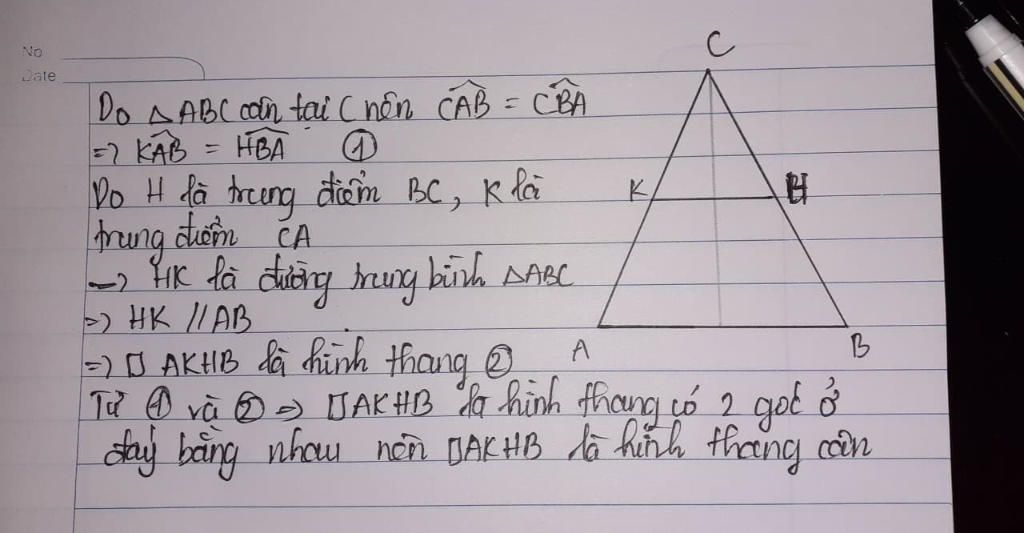 No
Date
Do △ABC cân tại C nên CAB̂ = CBÂ
=> KAB̂ = HBÂ ①
Do H là trung điểm BC, K là
trung điểm CA
=> HK là đường trung bình △ABC
=> HK // AB
=> □ AKHB là hình thang ②
Từ ① và ② => □AKHB là hình thang có 2 góc ở
đáy bằng nhau nên □AKHB là hình thang cân
C
K H
A B